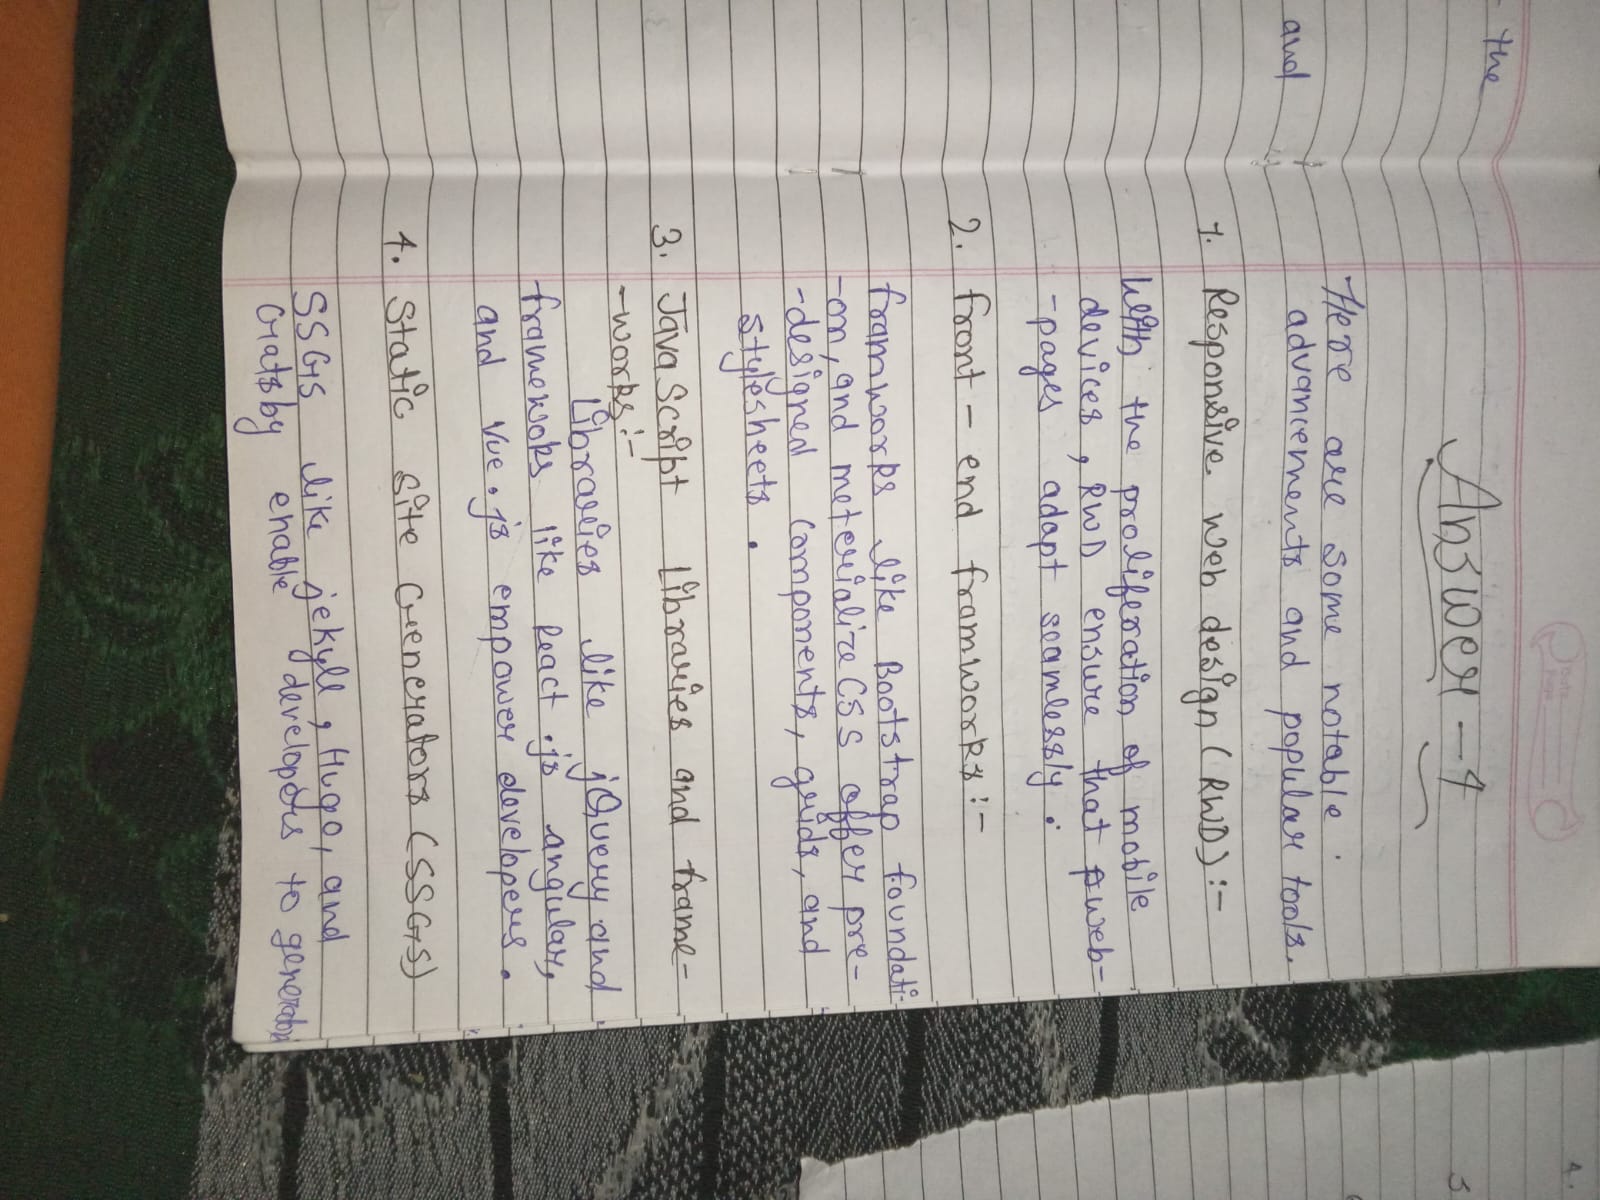 the
and
Answer - 4
Here are some notable
advancements and popular tools.
1. Responsive web design (RWD):-
With the proliferation of mobile
devices, RWD ensure that web-
-pages adapt seamlessly.
2. front-end framworks:-
framworks like Bootstrap foundati-
-on, and meterialize CSS offer pre-
-designed components, grids, and
stylesheets.
3. JavaScript Libraries and frame-
-works:-
Libraries like jQuery and
frameworks like React.js angular,
and vue.js empower developers.
4. Static site Generators (SSGS)
SSGS like jekyll, Hugo, and
Gatsby enable developers to